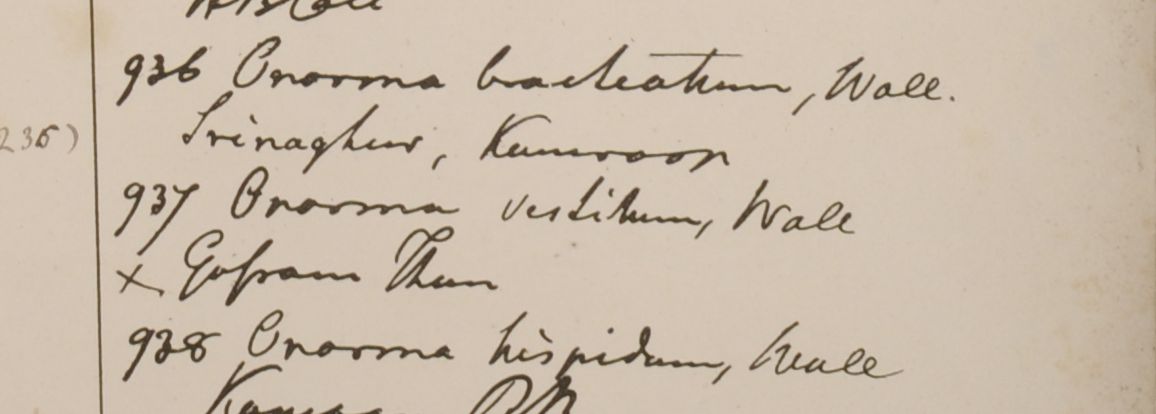 936 Onosma bracteatum, Wall.
Srinaghur, Kumaoon
236)
937 Onosma vestitum, Wall
x Gosram Than
938 Onosma hispidum, Wall